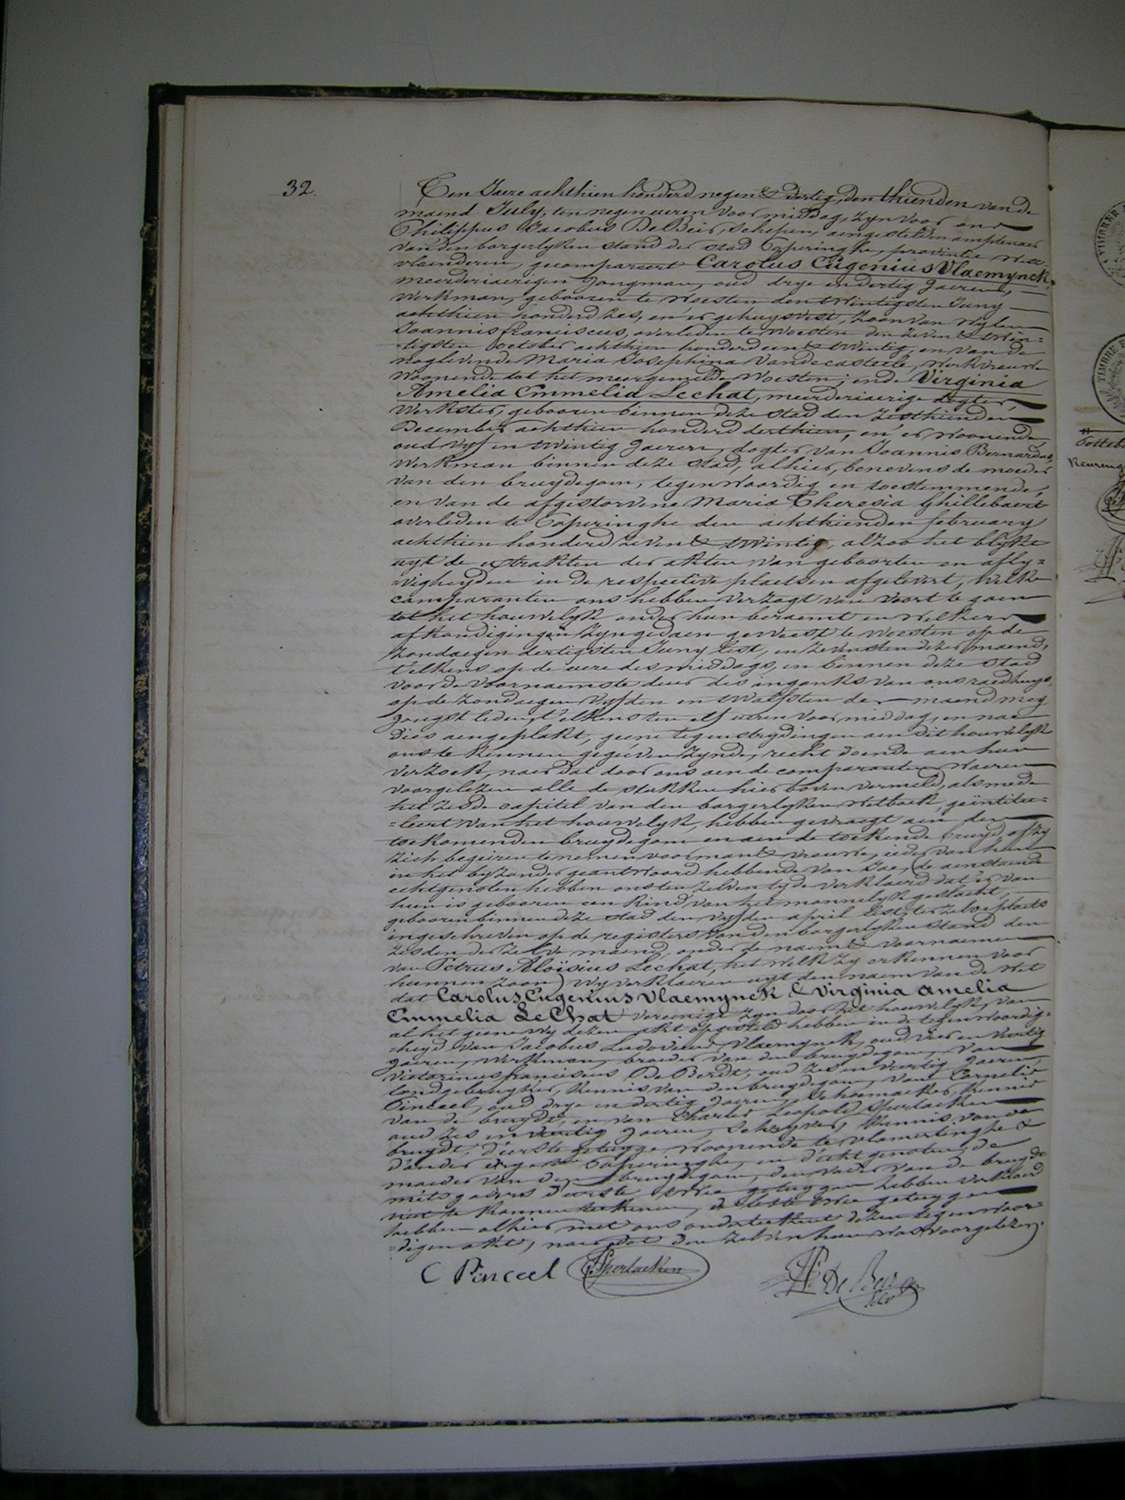 32.
Ten Jaere achthien honderd negen & dertig, den thienden van de
maend July, ten negen ueren voor middag, zyn voor ons
Philippus Jacobus De Beir, schepen, aengestelden amptenaer
van den borgerlyken stand der stad Poperinghe, provintie West
vlaenderen, gecompareert Carolus Eugenius Vlaemynck,
meerderiaerigen jongman, oud drye en dertig jaeren,
werkman, gebooren te Woesten den twintigsten Juny
achthien honderd zes, en er gehuysvest, zoon van wylen
Joannis franciscus, overleden te Woesten den zeven & twin-
-tigsten October achthien honderd een & twintig, en van de
noglevende Maria Josephina Vandecasteele, werkvrouw
woonende tot het meergemelde Woesten; ende Virginia
Amelia Emmelia Lechat, meerderiaerige dogter,
werkster, gebooren binnen deze stad den zesthienden
December achthien honderd derthien, en er woonende,
oud vyf en twintig jaeren, dogter van Joannis Bernardus,
werkman binnen deze stad, alhier, benevens de moeder
van den bruydegom, tegenwoordig en toestemmende,
en van de afgestorvene Maria Theresia Ghillebaert
overleden te Poperinghe den achthienden february
achthien honderd zeven & twintig, alzoo het blykt
uyt de extrakten der akten van geboorten en afly-
-vigheyden in de respective plaetsen afgelevert, welke
comparanten ons hebben verzogt van voort te gaen
tot het houwelyk onder hun beraemt en welkers
afkondigingen zyn gedaen geweest te Woesten op de
zondaegen dertigsten Juny lest, en zevensten dezer maend,
t'elkens op de uere des middags, en binnen deze stad
voor de voornaemste deur des ingangs van ons raedhuys
op de zondaegen vyfden en twalfsten der maend mey
jongst leden, t'elkens ten elf ueren voor middag, en naer
dies aengeplakt, geene tegenstrydingen aen dit houwelyk
ons te kennen gegeven zynde, recht doende aen hun
verzoek, naer dat door ons aen de comparanten waeren
voorgelezen alle de stukken hier boven vermeld, alsmede
het zesde capitel van den borgerlyken wetboek, geïntitu-
-leert van het houwelyk, hebben gevraegt aen den
toekomenden bruydegom en aen de toekomende bruyd, of zy
zich begeiren te nemen voor man & vrouw, ieder van hun
in het byzonder geantwoord hebbende van Jae, de aenstaende
echtgenoten hebben ons ten zelven tyde verklaerd dat er van
hun is gebooren een kind van het mannelyk geslacht,
gebooren binnen deze stad den vyfden april lest, ter zelve plaets
ingeschreven op de registers van den borgerlyken stand den
zesden der zelve maend, onder de naem & voornaemen
van Petrus Aloïsius Lechat, het welk zy erkennen voor
hunnen zoon) wy verklaeren uyt den naem van de wet
dat Carolus Eugenius Vlaemynck & Virginia Amelia
Emmelia LeChat vereenigt zyn door het houwelyk, van
al het geene wy dezen akt opgesteld hebben in de tegenwoordig-
-heyd van Jacobus Ludovicus Vlaemynck, oud vier en veertig
jaeren, werkman, broeder van den bruydegom, van
Victorinus franciscus De Berdt, oud zes en veertig jaeren,
landgebruyker, kennis van den bruydegom, van Cornelis
Pinceel, oud drye en dertig jaeren, schoenmaeker, kennis
van de bruyd, en van Charles Leopold Sperlaeken
oud zes en veertig jaeren, schryver, kennis van de
bruyd; d'eerste getuyge woonende te Vlamertinghe &
d'ander dry te Poperinghe, en d'echtgenoten, de
moeder van den bruydegom, den vader van de bruyd
mitsgaders d'eerste twee getuygen hebben verklaerd
niet te konnen teekenen, de leste twee getuygen
hebben alhier met ons onderteekent dezen tegenwoor-
-digen akt, naer dat den zelven hun was voorgelezen.
C Pinceel Sperlaeken Ph De Beir